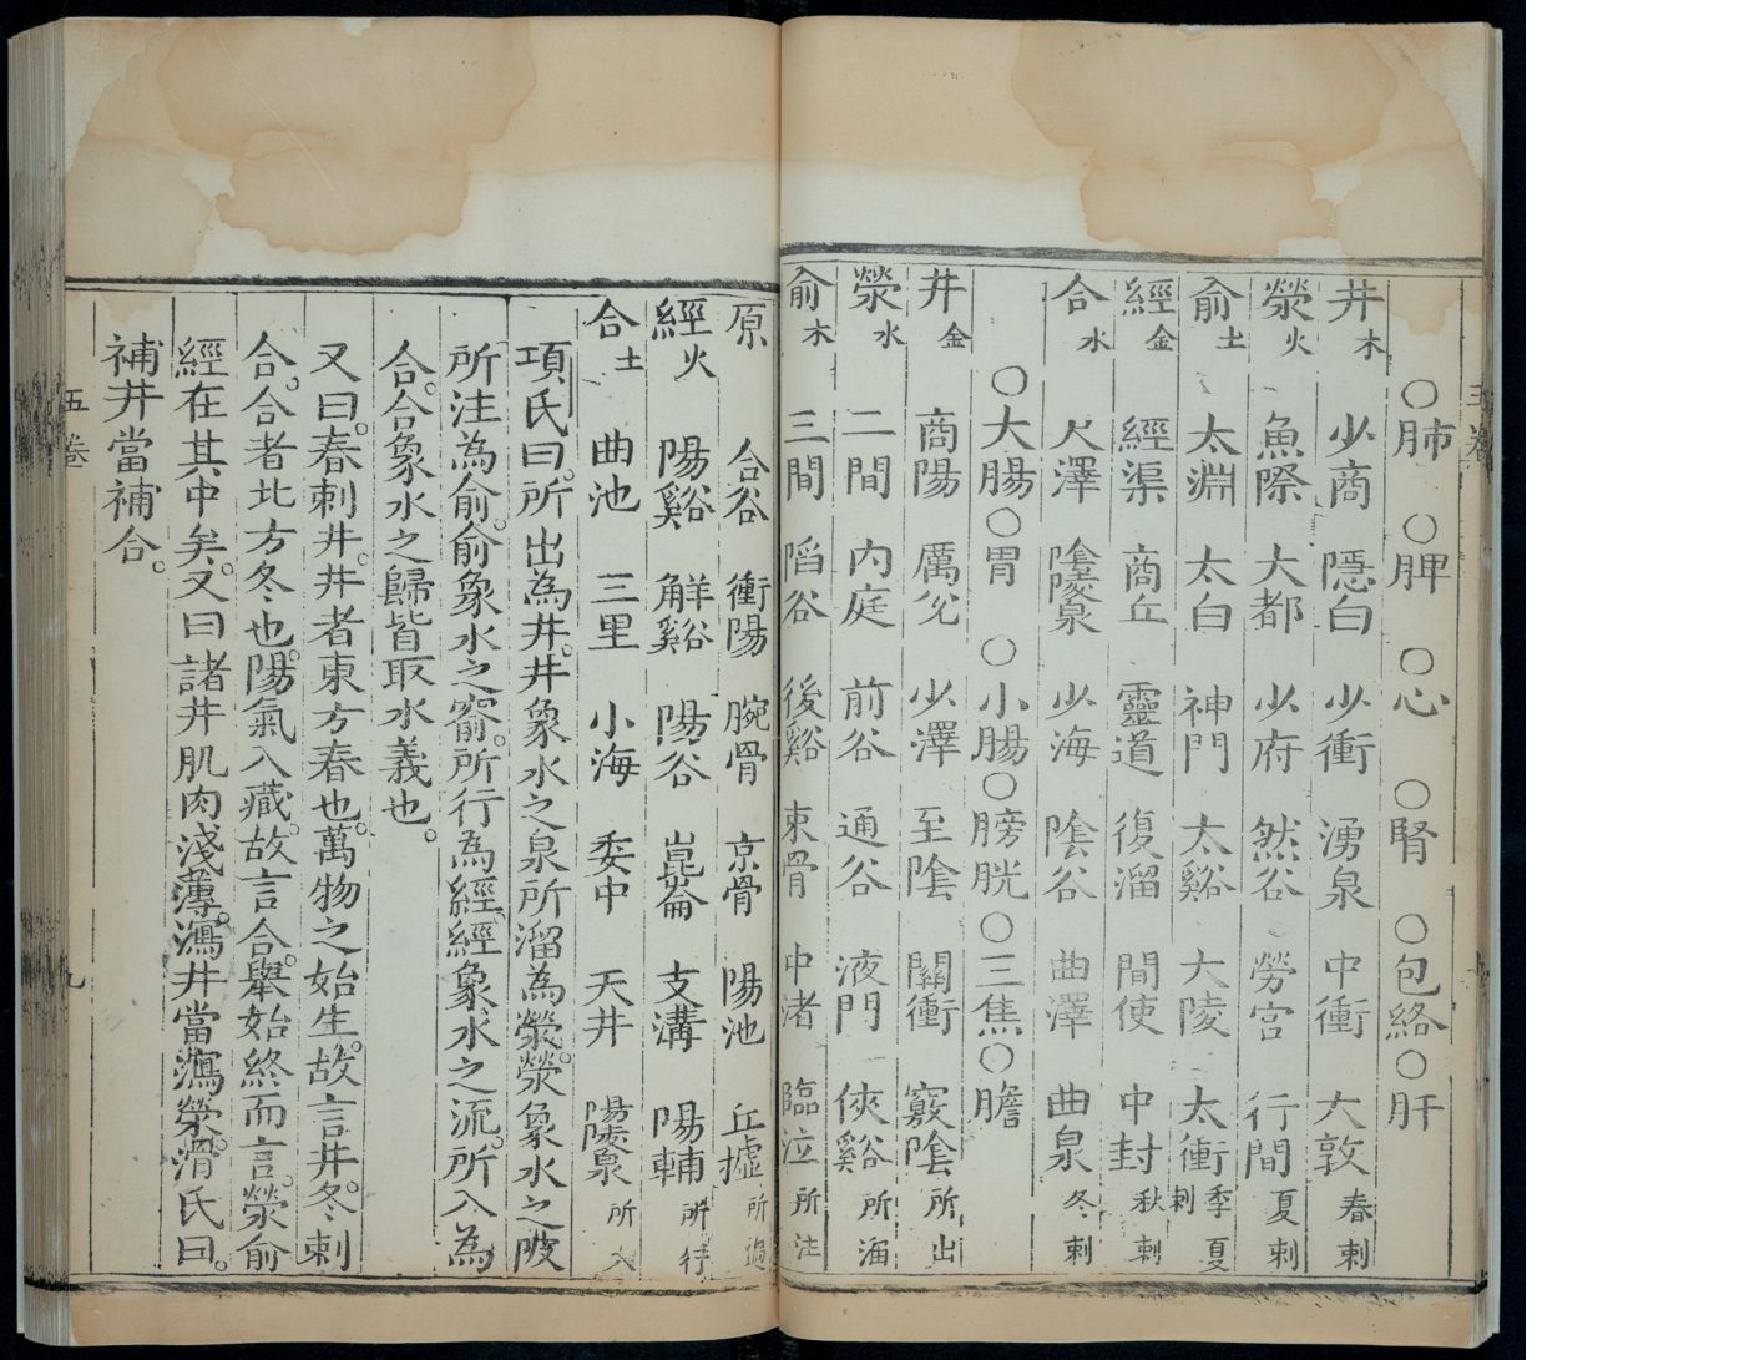 ○肺 ○脾 ○心 ○腎 ○包絡○肝
井木 少商 隱白 少衝 湧泉 中衝 大敦春刺
滎火 魚際 大都 少府 然谷 勞宮 行間夏刺
俞土 太淵 太白 神門 太谿 大陵 太衝季夏刺
經金 經渠 商丘 靈道 復溜 間使 中封秋刺
合水 尺澤 陰陵泉 少海 陰谷 曲澤 曲泉冬刺
○大腸○胃 ○小腸○膀胱○三焦○膽
井金 商陽 厲兌 少澤 至陰 關衝 竅陰所出
滎水 二間 內庭 前谷 通谷 液門 俠谿所溜
俞木 三間 陷谷 後谿 束骨 中渚 臨泣所注
原 合谷 衝陽 腕骨 京骨 陽池 丘墟所過
經火 陽谿 解谿 陽谷 崑崙 支溝 陽輔所行
合土 曲池 三里 小海 委中 天井 陽陵泉所入
項氏曰。所出為井。井象水之泉所溜為滎。滎象水之陂
所注為俞。俞象水之窬。所行為經。經象水之流。所入為
合。合象水之歸皆取水義也。
又曰。春刺井。井者東方春也。萬物之始生。故言井。冬刺
合。合者北方冬也。陽氣入藏。故言合。舉始終而言。滎俞
經在其中矣。又曰諸井肌肉淺薄。瀉井當瀉滎。滑氏曰。
補井當補合。
五卷
九